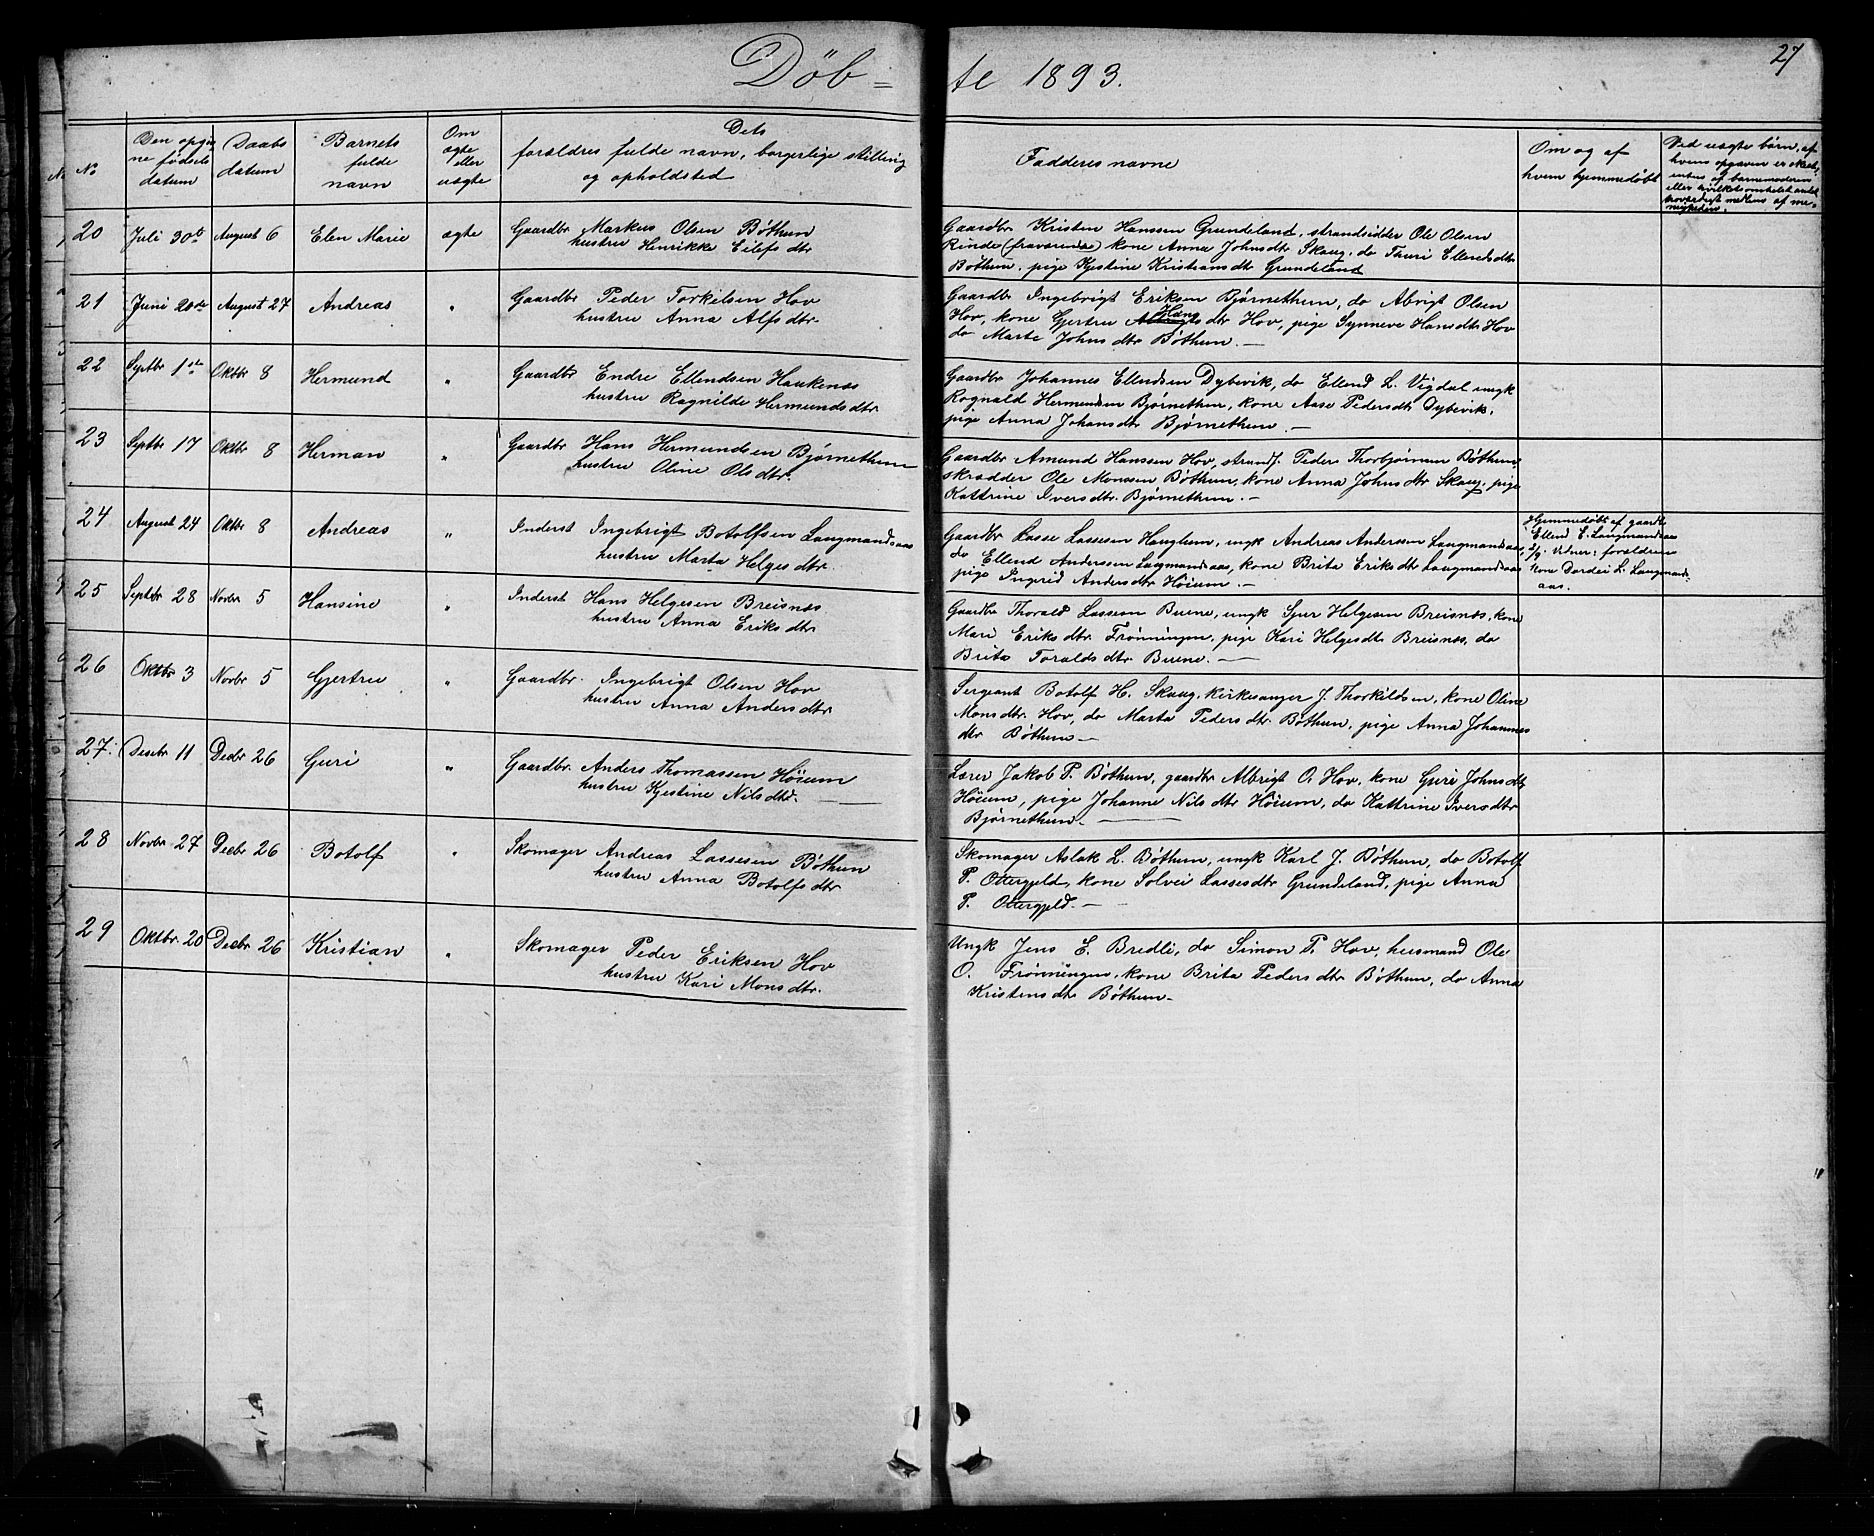 Døb=
te 1893.
27
No
Den opgiv
ne fødsels
datum
Daabs
datum
Barnets
fulde
navn
Om
ægte
eller
uægte
Dets
forældres fulde navn, borgerlige stilling
og opholdsted
Fadderes navne
Om og af
hvem hjemmedøbt
Ved uægte børn, af
hvem opgaven er
af barnemoderen
eller
medlems af me-
nigheden.
20 Juli 30te August 6 Elen Marie ægte Gaardbr Markus Olsen Bøthun
hustru Henrikke Eilefsdtr
Gaardbr Kristen Hanssen Grundeland, strandsidder Ole Olsen
Rinde (fraværende) kone Anna Johnsdtr Skaug, do Thuri Ellendsdtr
Bøthun, pige Kjestine Kristiansdt Grundeland
21 Juni 20de August 27 Andreas " Gaardbr Peder Torkelsen Hov
hustru Anna Alfsdtr.
Gaardbr Ingebrigt Eriksen Bjørnethun, do Albrigt Olsen
Hov, kone Gjertru Hansdtr Hov, pige Synneve Hansdtr Hov
do Marte Johnsdtr Bøthun. —
22 Septbr 1ste Oktbr 8 Hermund " Gaardbr Endre Ellendsen Haukenæs
hustru Ragnilde Hermundsdtr.
Gaardbr Johannes Ellendsen Dybevik, do Ellend L. Vigdal ungk
Rognald Hermundsen Bjørnethun, kone Aase Pedersdtr Dybevik,
pige Anna Johansdtr Bjørnethun. —
23 Septbr 17 Oktbr 8 Herman " Gaardbr Hans Hermundsen Bjørnethun
hustru Oline Olsdtr.
Gaardbr Amund Hanssen Hov, strands. Peder Thorbjørnsen Bøthun,
skrædder Ole Monssen Bøthun, kone Anna Johnsdtr Skaug, pige
Kattrine Iversdtr. Bjørnethun. —
24 August 24 Oktbr 8 Andreas " Inderst Ingebrigt Botolfsen Langmandsaas
hustru Marta Helgesdtr.
Gaardbr Lasse Lassesen Hauglum, ungk Andreas Anderssen Langmandsaas,
do Ellend Anderssen Langmandsaas, kone Brita Eriksdtr Langmandsaas
pige Ingrid Andersdtr Høium. —
Hjemmedøbt af gaardbr
Ellend E. Langmandsaas
Vidner: forældrene
kone Dordei L. Langmands-
aas.
25 Septbr 28 Novbr 5 Hansine " Inderst Hans Helgesen Breisnæs
hustru Anna Eriksdtr
Gaardbr Thorald Lassesen Buene, ungk Sjur Helgesen Breisnæs, kone
Mari Eriksdtr Frønningen, pige Kari Helgesdtr Breisnæs, do
Brita Toraldsdtr Buene. —
26 Oktbr 3 Novbr 5 Gjertru " Gaardbr. Ingebrigt Olsen Hov
hustru Anna Andersdtr
Sergeant Botolf H. Skaug, kirkesanger J. Thorkildsen, kone Oline
Monsdtr. Hov, do Marta Pedersdtr. Bøthun, pige Anna Johannes
dtr Bøthun —
27. Desbr 11 Decbr 26 Guri " Gaardbr. Anders Thomassen Høium
hustru Kjestine Nilsdtr. —
Lærer Jakob P. Bøthun, gaardbr Albrigt O. Hov, kone Guri Johnsdtr
Høium, pige Johanne Nilsdtr Høium, do Kattrine Iversdtr
Bjørnethun. —
28 Novbr 27 Decbr 26 Botolf " Skomager Andreas Lassesen Bøthun
hustru Anna Botolfsdtr
Skomager Aslak L. Bøthun, ungk Karl J. Bøthun, do Botolf
P. Ottergjeld, kone Solvei Lassesdtr Grundeland, pige Anna
P. Ottergjeld. —
29 Oktbr. 20 Decbr 26 Kristian " Skomager Peder Eriksen Hov
hustru Kari Monsdtr.
Ungk Jens E. Bredli, do Simon P. Hov, husmand Ole
O. Frønningen, kone Brita Pedersdtr Bøthun, do Anna
Kristensdtr Bøthun —